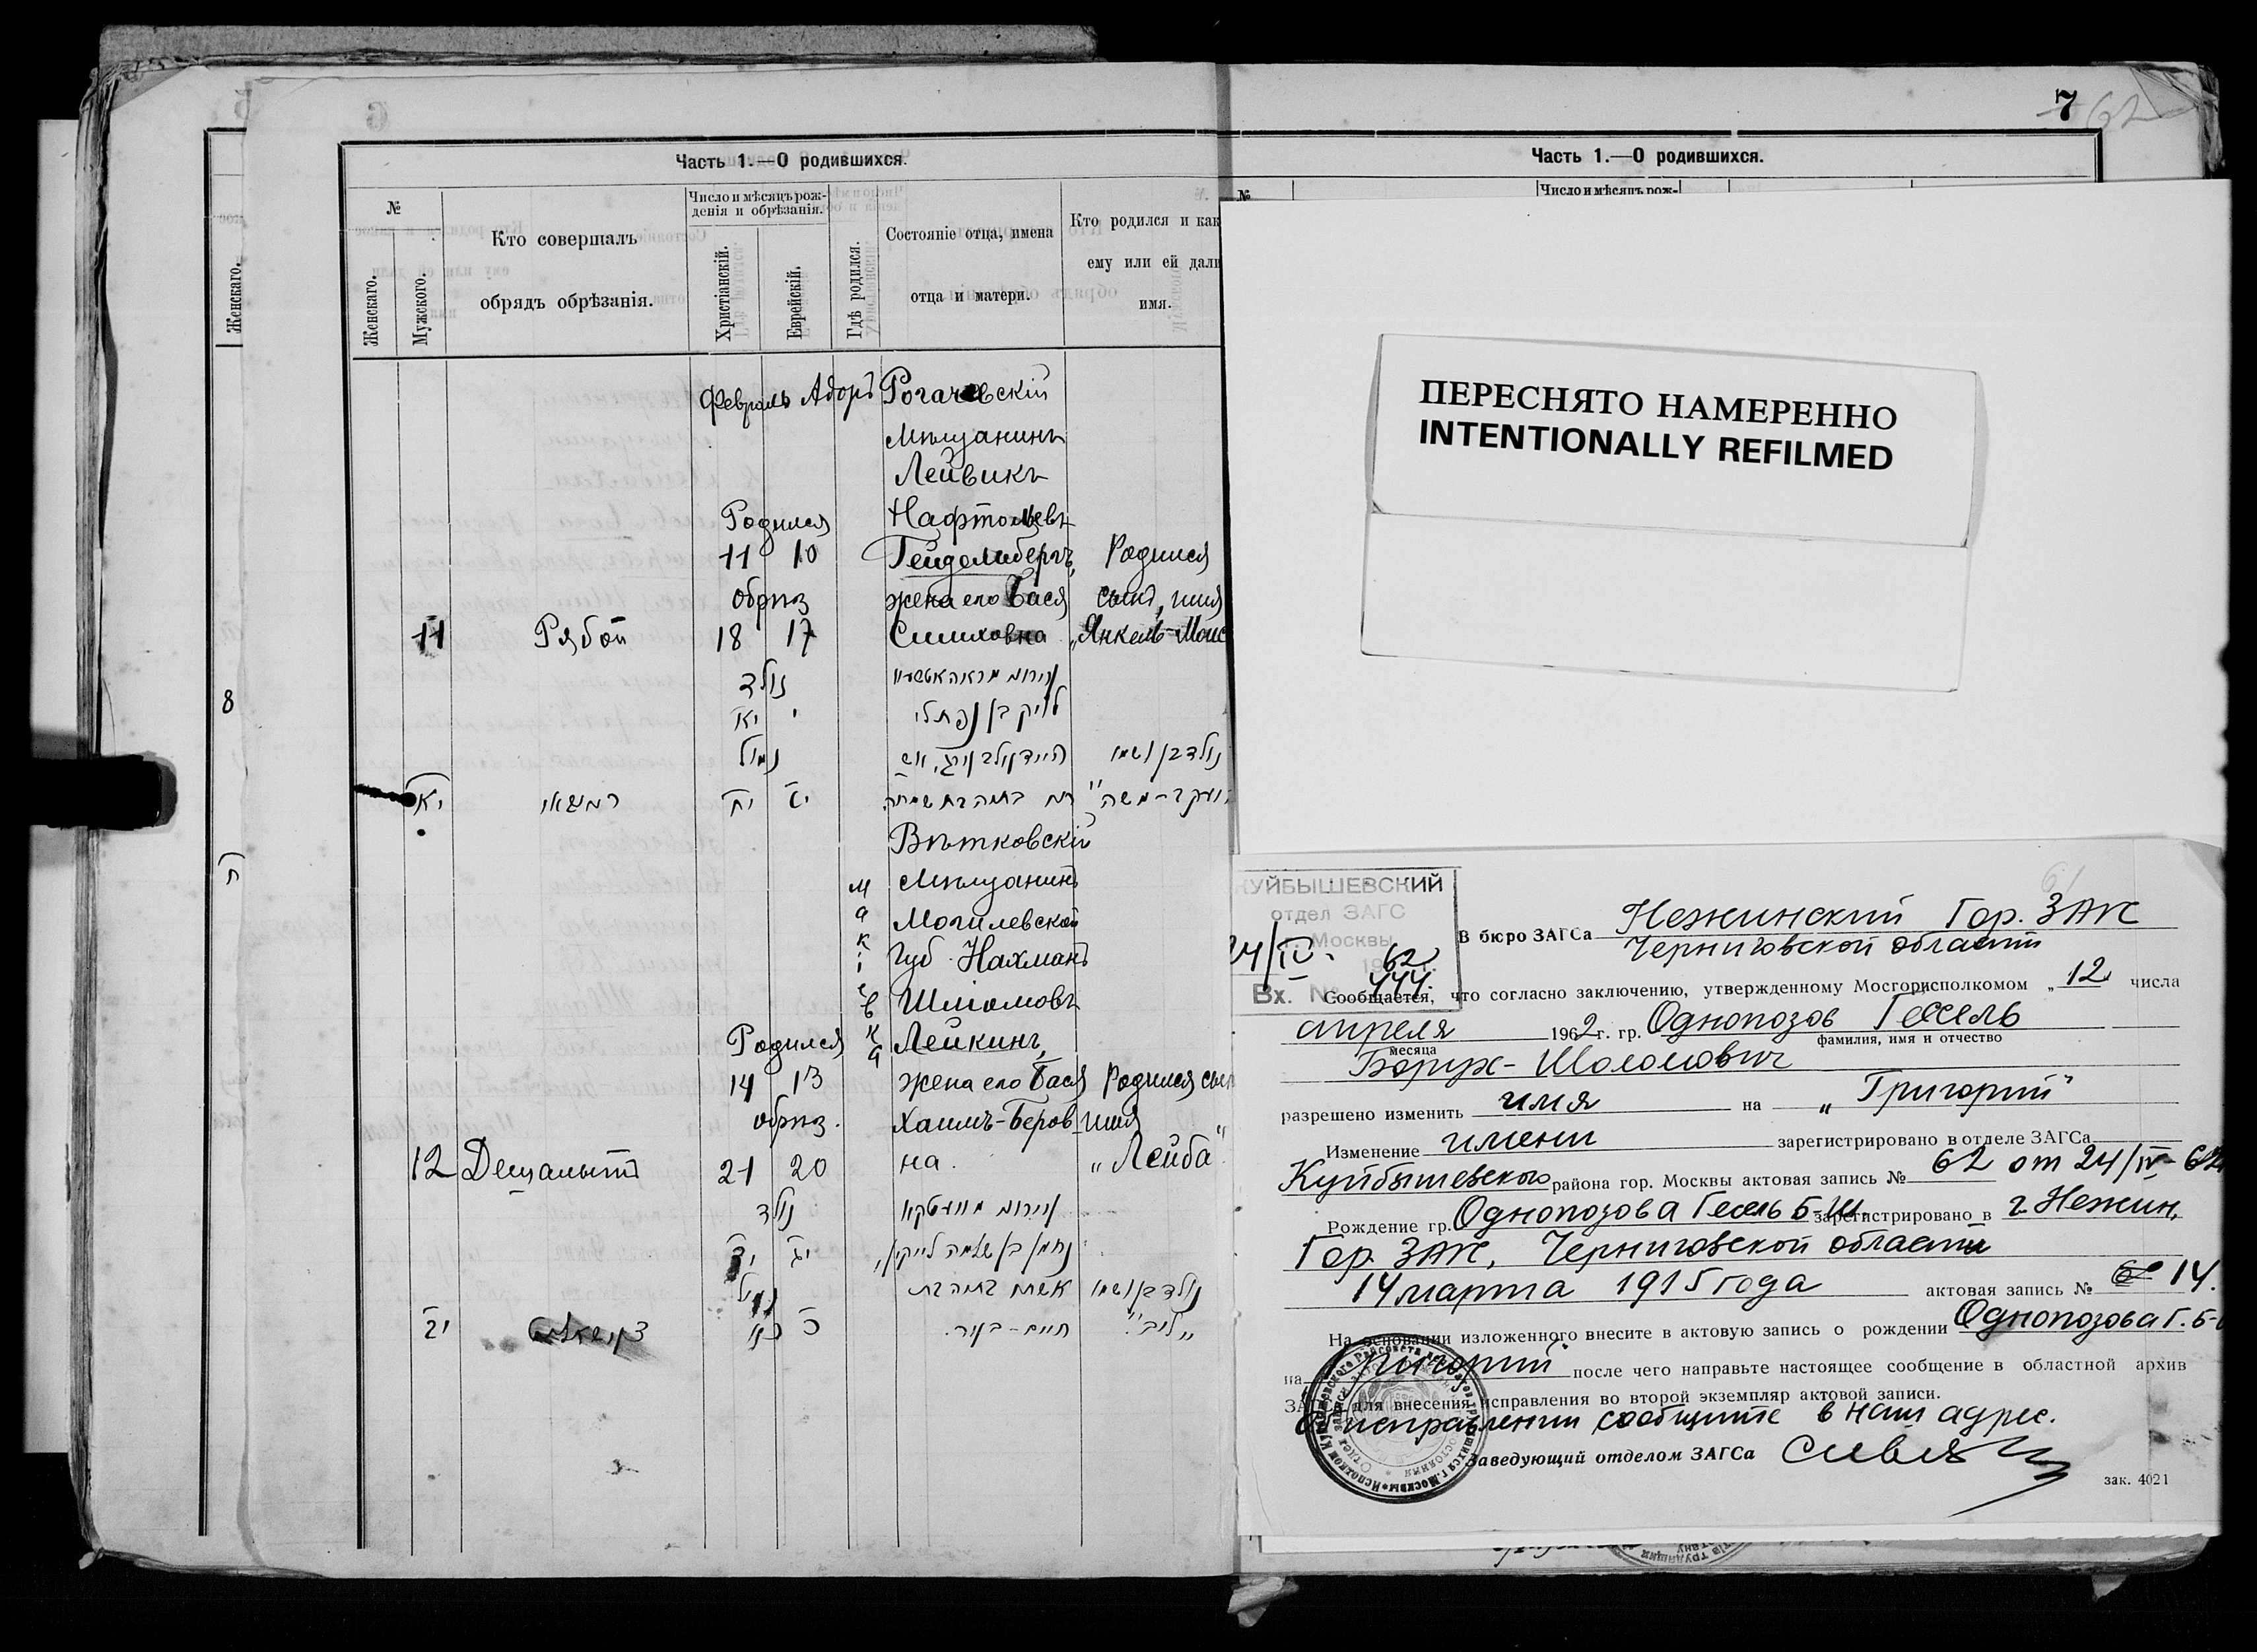 7
62
Часть 1.—О родившихся.
№
Женскаго.
Мужского.
Кто совершалъ
обрядъ обрѣзанія.
Число и мѣсяцъ рож-
денія и обрѣзанія.
Христіанскій.
Еврейскій.
Гдѣ родился.
Состояніе отца, имена
отца и матери.
Кто родился и как
ему или ей дали
имя.
Женскаго.
8
ח
Февраль Адоръ Рогачевскій
Мѣщанинъ
Лейвикъ
Родился Нафтолievъ
11 10 Гейдельбергъ, Родился
обрѣз жена его Бася сынъ, имя
11 Рябой 18 17 Симховна „Янкель-Моис
נולד
יא י לויק בן נפתלי
נמול נולד בן ושמו
יא יח יז יעקב-משה"
Вѣтковскій
Мѣщанинъ
Могилевской
Губ. Нахманъ
Шліомовъ
Родился Лейкинъ,
14 13 жена его Бася Родился сын
обрѣз. Хаимъ-Беров имя
12 21 20 на. „Лейба"
נולד
יד יג נחמן בן שלמה לייקין,
נמול נולד בן ושמו
יב כא כ חיים-בער. „ליב"
Часть 1.—О родившихся.
№
Число и мѣсяцъ рож-
ПЕРЕСНЯТО НАМЕРЕННО
INTENTIONALLY REFILMED
КУЙБЫШЕВСКИЙ
отдел ЗАГС
г. Москвы
24/IV. 62
Вх. № 444.
В бюро ЗАГСа Нежинский Гор. ЗАГС
Черниговской области
Сообщается, что согласно заключению, утвержденному Мосгорисполкомом „12" числа
апреля 1962 г. гр. Однопозов Гессель
месяца фамилия, имя и отчество
Борух-Шоломович
разрешено изменить имя на „Григорий"
Изменение имени зарегистрировано в отделе ЗАГСа
Куйбышевского района гор. Москвы актовая запись № 62 от 24/IV-62
Рождение гр. Однопозова Гесель Б-Ш. зарегистрировано в г. Нежин,
Гор. ЗАГС, Черниговской области
14 марта 1915 года актовая запись № 14.
На основании изложенного внесите в актовую запись о рождении Однопозова Г. Б-
на „Григорий" после чего направьте настоящее сообщение в областной архив
ЗАГС для внесения исправления во второй экземпляр актовой записи.
Об исправлении сообщите в наш адрес.
Заведующий отделом ЗАГСа
зак. 4021